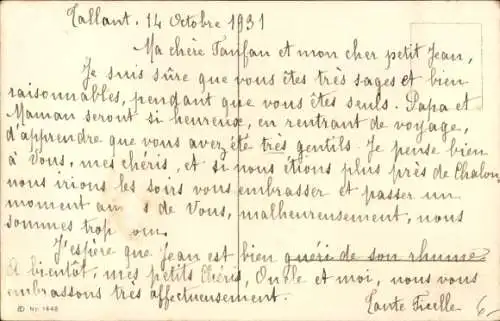 Tallant, 14 Octobre 1931
Ma chère Fanfan et mon cher petit Jean,
Je suis sûre que vous êtes très sages et bien
raisonnables, pendant que vous êtes seuls. Papa et
Maman seront si heureux, en rentrant de voyage,
d'apprendre que vous avez été très gentils. Je pense bien
à Vous, mes chéris, et si nous étions plus près de Chalon,
nous irions les soirs vous embrasser et passer un
moment de Vous, malheureusement, nous
sommes trop
J'espère que Jean est bien guéri de son rhume
A bientôt, mes petits Chéris, Oncle et moi, nous vous
embrassons très affectueusement.
Tante
© Nr. 1448